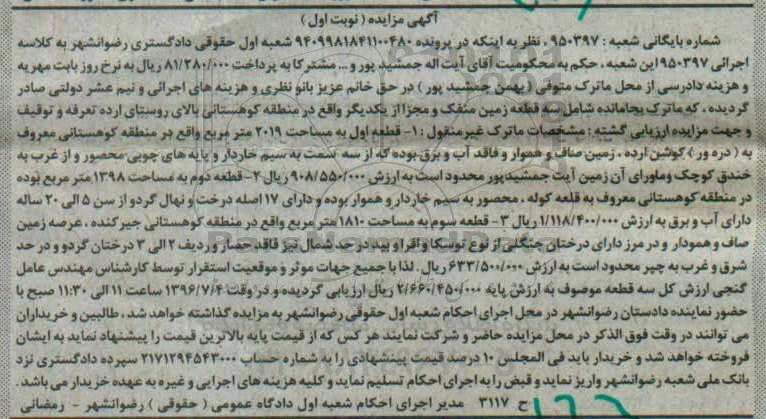 آگهی مزایده ( نوبت اول )
شماره بایگانی شعبه : ۹۵۰۳۹۷ ، نظر به اینکه در پرونده ۹۴۰۹۹۸۱۸۴۱۱۰۰۴۸۰ شعبه اول حقوقی دادگستری رضوانشهر به کلاسه
اجرائی ۹۵۰۳۹۷ این شعبه ، حکم به محکومیت آقای آیت اله جمشید پور و ... مشترکا به پرداخت ۸۱/۲۸۰/۰۰۰ ریال به نرخ روز بابت مهریه
و هزینه دادرسی از محل ماترک متوفی ( بهمن جمشید پور ) در حق خانم عزیز بانو نظری و هزینه های اجرائی و نیم عشر دولتی صادر
گردیده ، که ماترک بجامانده شامل سه قطعه زمین منفک و مجزا از یکدیگر واقع در منطقه کوهستانی بالای روستای ارده تعرفه و توقیف
و جهت مزایده ارزیابی گشته : مشخصات ماترک غیرمنقول : ۱- قطعه اول به مساحت ۲۰۱۹ متر مربع واقع در منطقه کوهستانی معروف
به ( دره ور ) کوشن ارده ، زمین صاف و هموار و فاقد آب و برق بوده که از سه سمت به سیم خاردار و پایه های چوبی محصور و از غرب به
خندق کوچک وماورای آن زمین آیت جمشیدپور محدود است به ارزش ۹۰۸/۵۵۰/۰۰۰ ریال ۲- قطعه دوم به مساحت ۱۳۹۸ متر مربع بوده
در منطقه کوهستانی معروف به قلعه کوله ، محصور به سیم خاردار و هموار بوده و دارای ۱۷ اصله درخت و نهال گردو از سن ۵ الی ۲۰ ساله
دارای آب و برق به ارزش ۱/۱۱۸/۴۰۰/۰۰۰ ریال ۳- قطعه سوم به مساحت ۱۸۱۰ متر مربع واقع در منطقه کوهستانی جیرکنده ، عرصه زمین
صاف و همودار و در مرز دارای درختان جنگلی از نوع توسکا و آفرا و بید در حد شمال نیز فاقد حصار و ردیف ۲ الی ۳ درختان گردو و در حد
شرق و غرب به چپر محدود است به ارزش ۶۳۳/۵۰۰/۰۰۰ ریال . لذا با جمیع جهات موثر و موقعیت استقرار توسط کارشناس مهندس عامل
گنجی ارزش کل سه قطعه موصوف به ارزش پایه ۲/۶۶۰/۴۵۰/۰۰۰ ریال ارزیابی گردیده و در وقت ۱۳۹۶/۷/۴ ساعت ۱۱ الی ۱۱:۳۰ صبح با
حضور نماینده دادستان رضوانشهر در محل اجرای احکام شعبه اول حقوقی رضوانشهر به مزایده گذاشته خواهد شد ، طالبین و خریداران
می توانند در وقت فوق الذکر در محل مزایده حاضر و شرکت نمایند هر کس که از قیمت پایه بالاترین قیمت را پیشنهاد نماید به ایشان
فروخته خواهد شد و خریدار باید فی المجلس ۱۰ درصد قیمت پیشنهادی را به شماره حساب ۲۱۷۱۲۹۴۵۴۳۰۰۰ سپرده دادگستری نزد
بانک ملی شعبه رضوانشهر واریز نماید و قبض را به اجرای احکام تسلیم نماید و کلیه هزینه های اجرایی و غیره به عهده خریدار می باشد .
ح ۳۱۱۷ مدیر اجرای احکام شعبه اول دادگاه عمومی ( حقوقی ) رضوانشهر - رمضانی